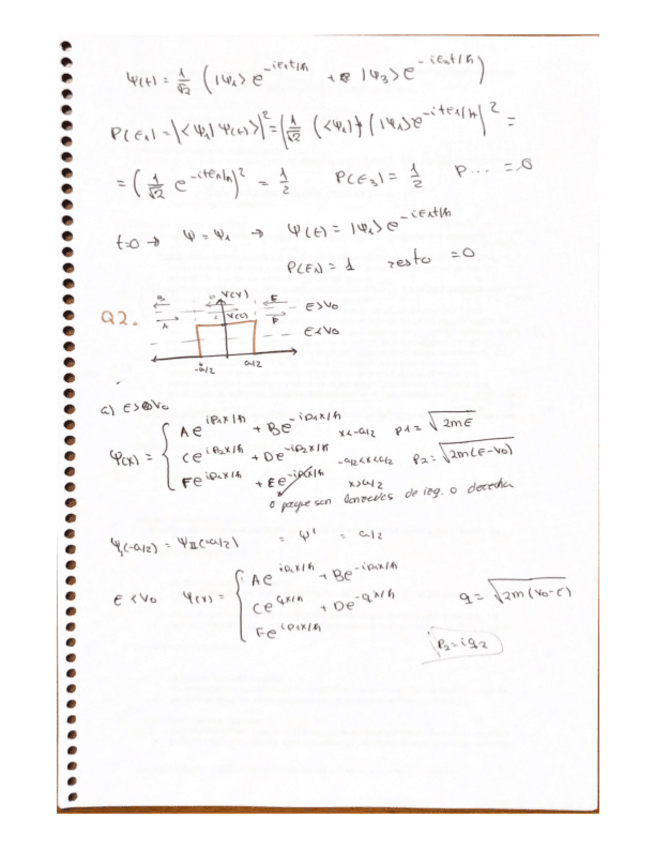 ψ(t) = 1/√2 (|ψ₁> e^{-iE₁t/ħ} + |ψ₃> e^{-iE₃t/ħ})
P(E₁) = |<ψ₁|ψ(t)>|² = |1/√2 (<ψ₁|)(|ψ₁>e^{-itE₁/ħ}|² =
= (1/√2 e^{-itE₁/ħ})² = 1/2 P(E₃) = 1/2 P... = 0
t=0 → ψ = ψ₁ → ψ(t) = |ψ₁> e^{-iE₁t/ħ}
P(E₁) = 1 resto = 0
Q2.
B D V(x) E E>V₀
A C V(0) F E<V₀
-a/2 a/2
a) E>V₀
ψ(x) = {
Ae^{ip₁x/ħ} + Be^{-ip₁x/ħ} x<-a/2 p₁ = √2mE
Ce^{ip₂x/ħ} + De^{-ip₂x/ħ} -a/2<x<a/2 p₂ = √2m(E-V₀)
Fe^{ip₁x/ħ} + Ee^{-ip₁x/ħ} x>a/2
0 porque son lanzadas de izq. a derecha
ψ_I(-a/2) = ψ_II(-a/2) = ψ' = a/2
E<V₀ ψ(x) = {
Ae^{ip₁x/ħ} + Be^{-ip₁x/ħ}
Ce^{qx/ħ} + De^{-qx/ħ} q = √2m(V₀-E)
Fe^{ip₁x/ħ}
p₂ = iq₂